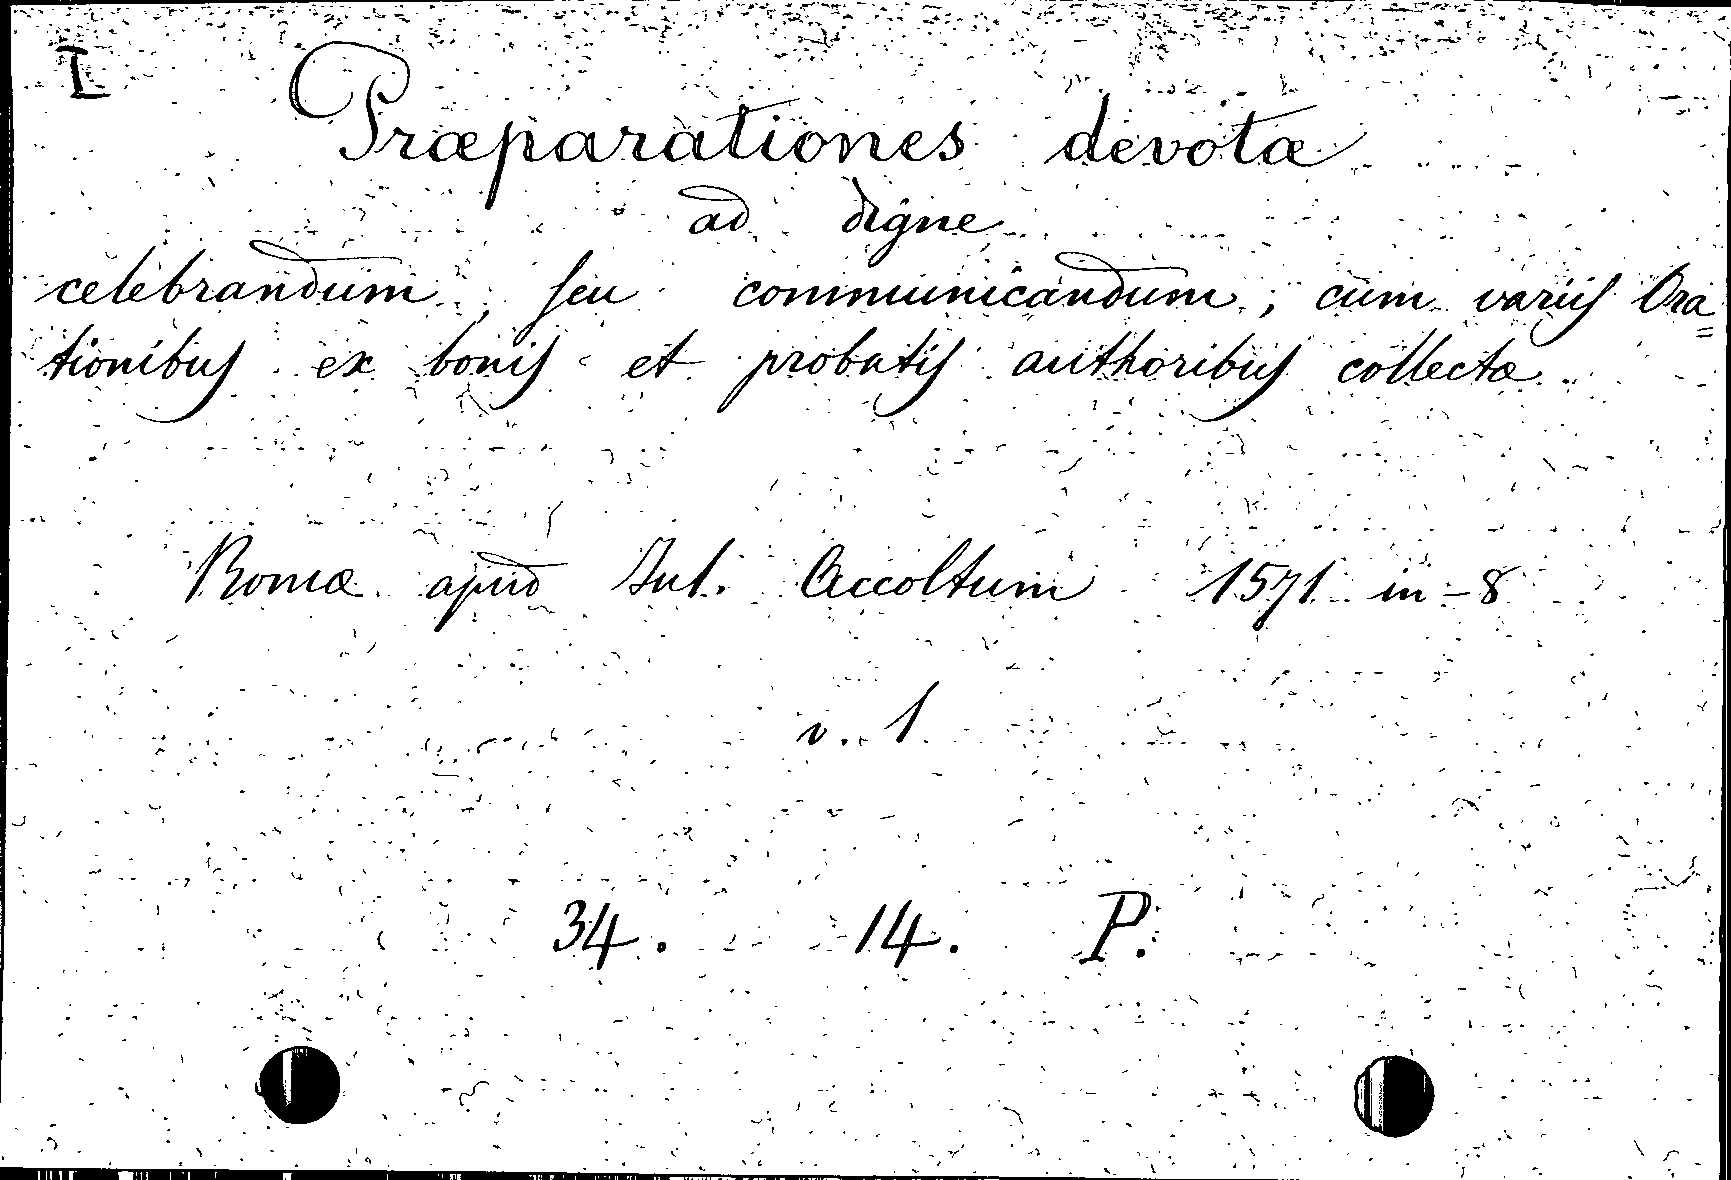 I
Præparationes devotæ
ad digne
celebrandum, seu communicandum, cum variis Ora=
tionibus ex bonis et probatis authoribus collectæ
Romæ apud Jul. Accoltum 1571 in-8
v. 1
34. 14. P.